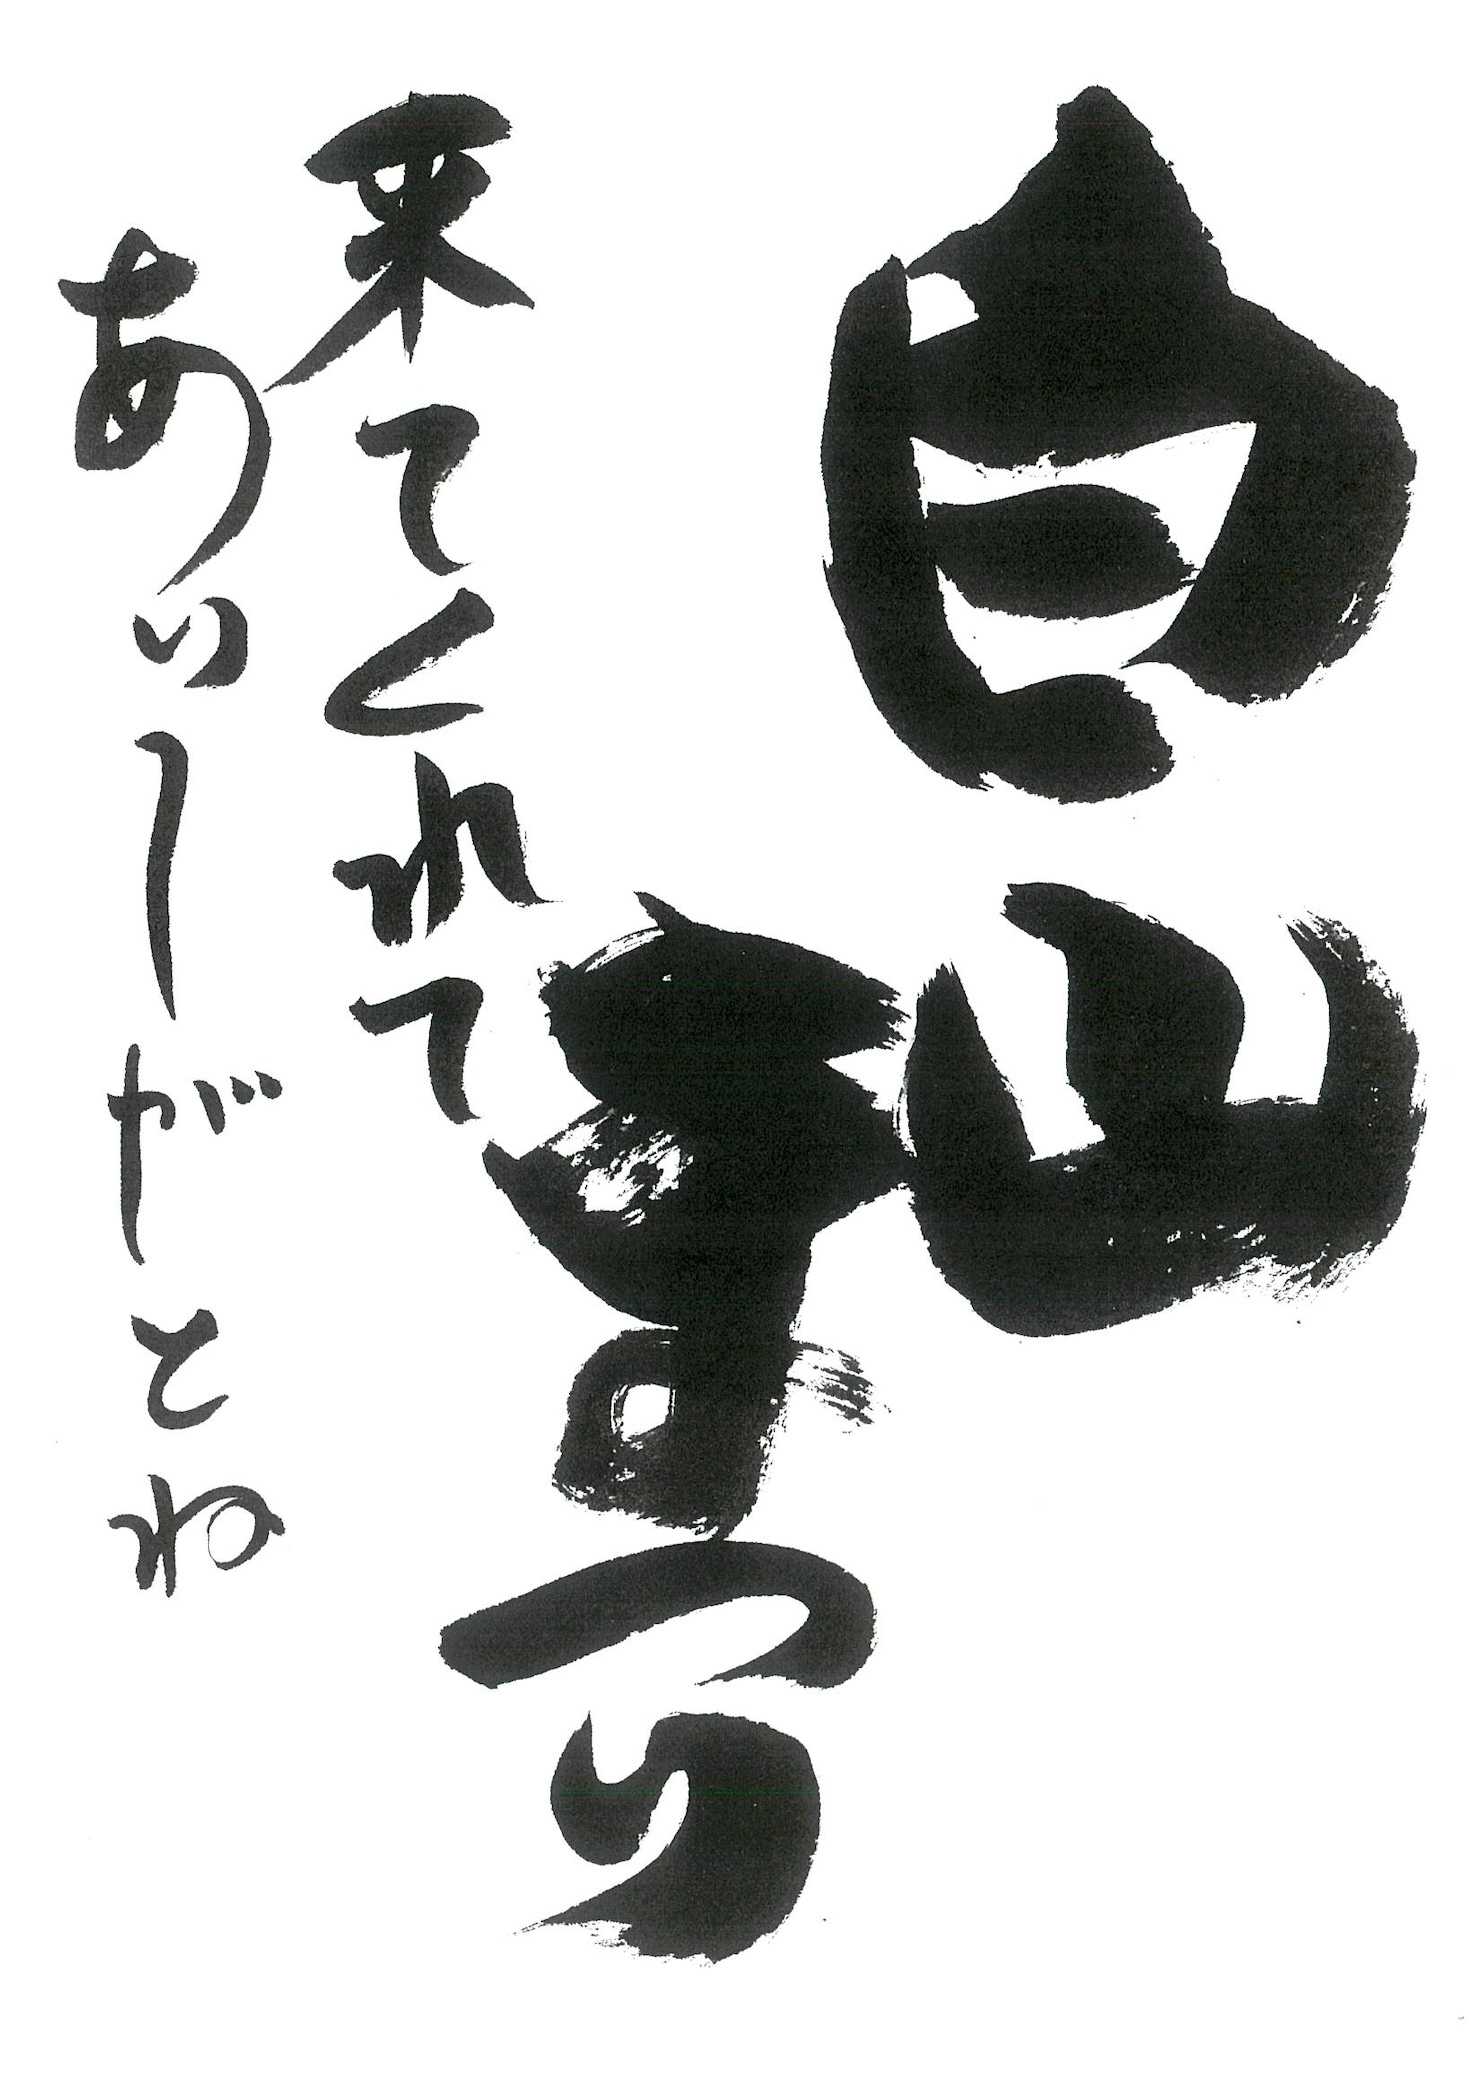 白山
まつり
来てくれて
あいしがとね